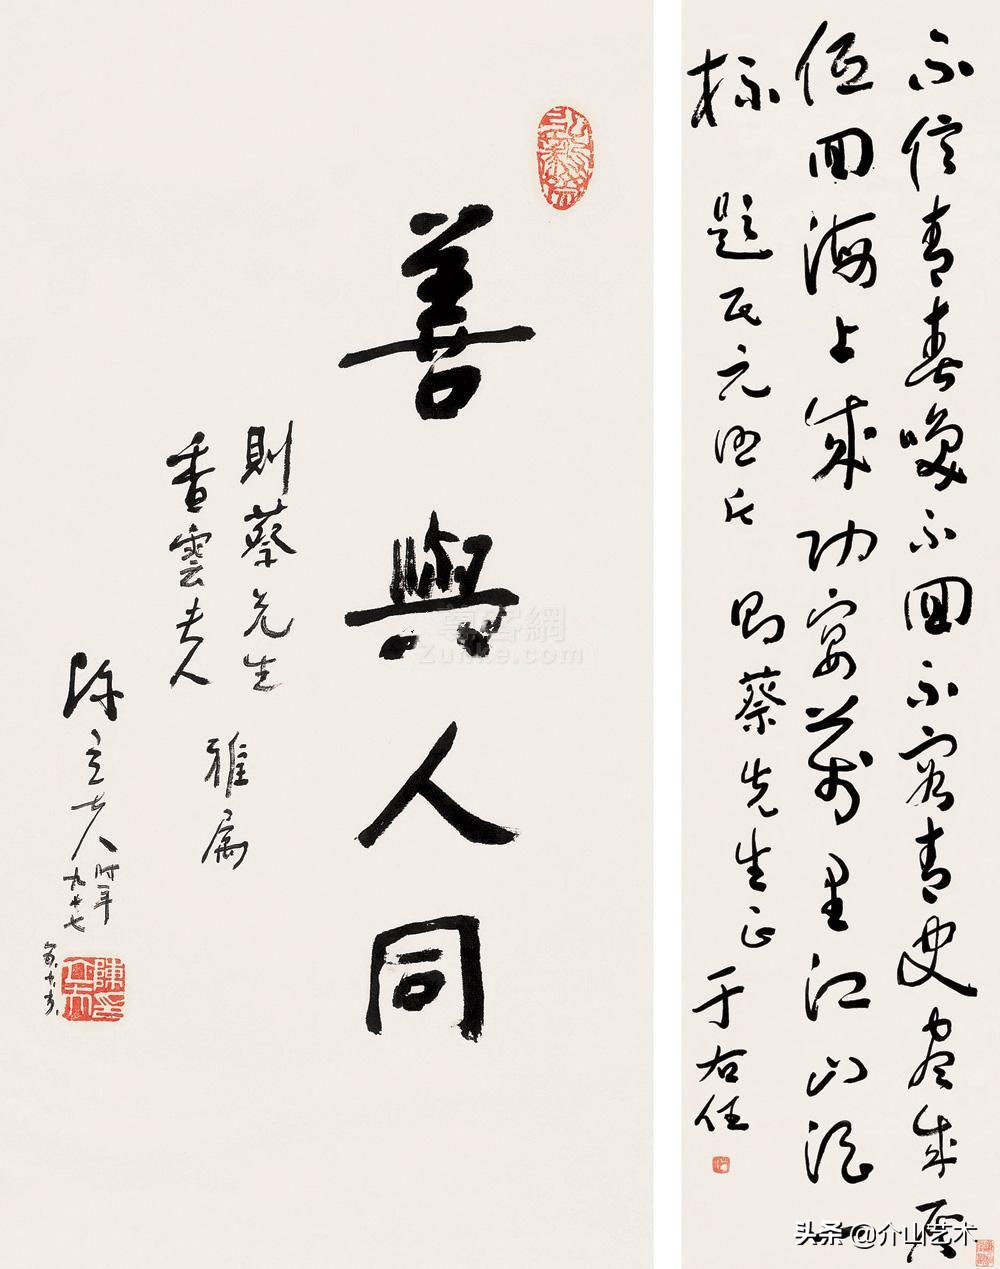 不信青春喚不回不容青史盡成灰
低回海上成功宴萬里江山酒一
杯 題民元照片 則蔡先生正 于右任
善與人同
則蔡先生
香雲夫人
雅屬
陳立夫
時年
九十七
陳立夫印
尊客網
Zunke.com
头条 @介山艺术